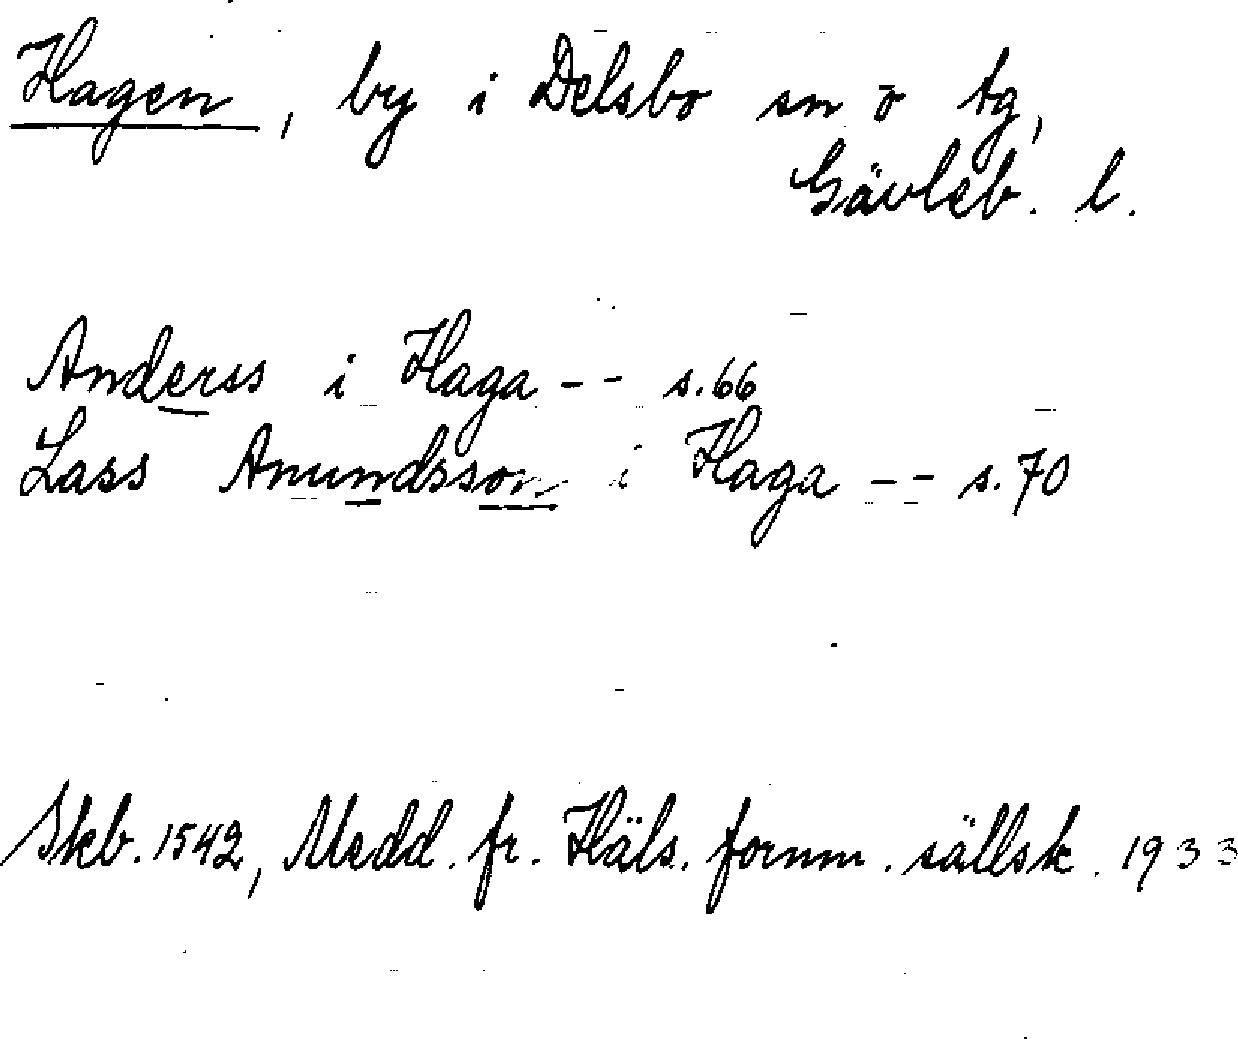 Hagen, by i Delsbo sn o tg,
Gävleb. l.
Anderss i Haga -- s. 66
Lass Anundsson i Haga -- s. 70
Skb. 1542, Medd. fr. Häls. fornm. sällsk. 1933